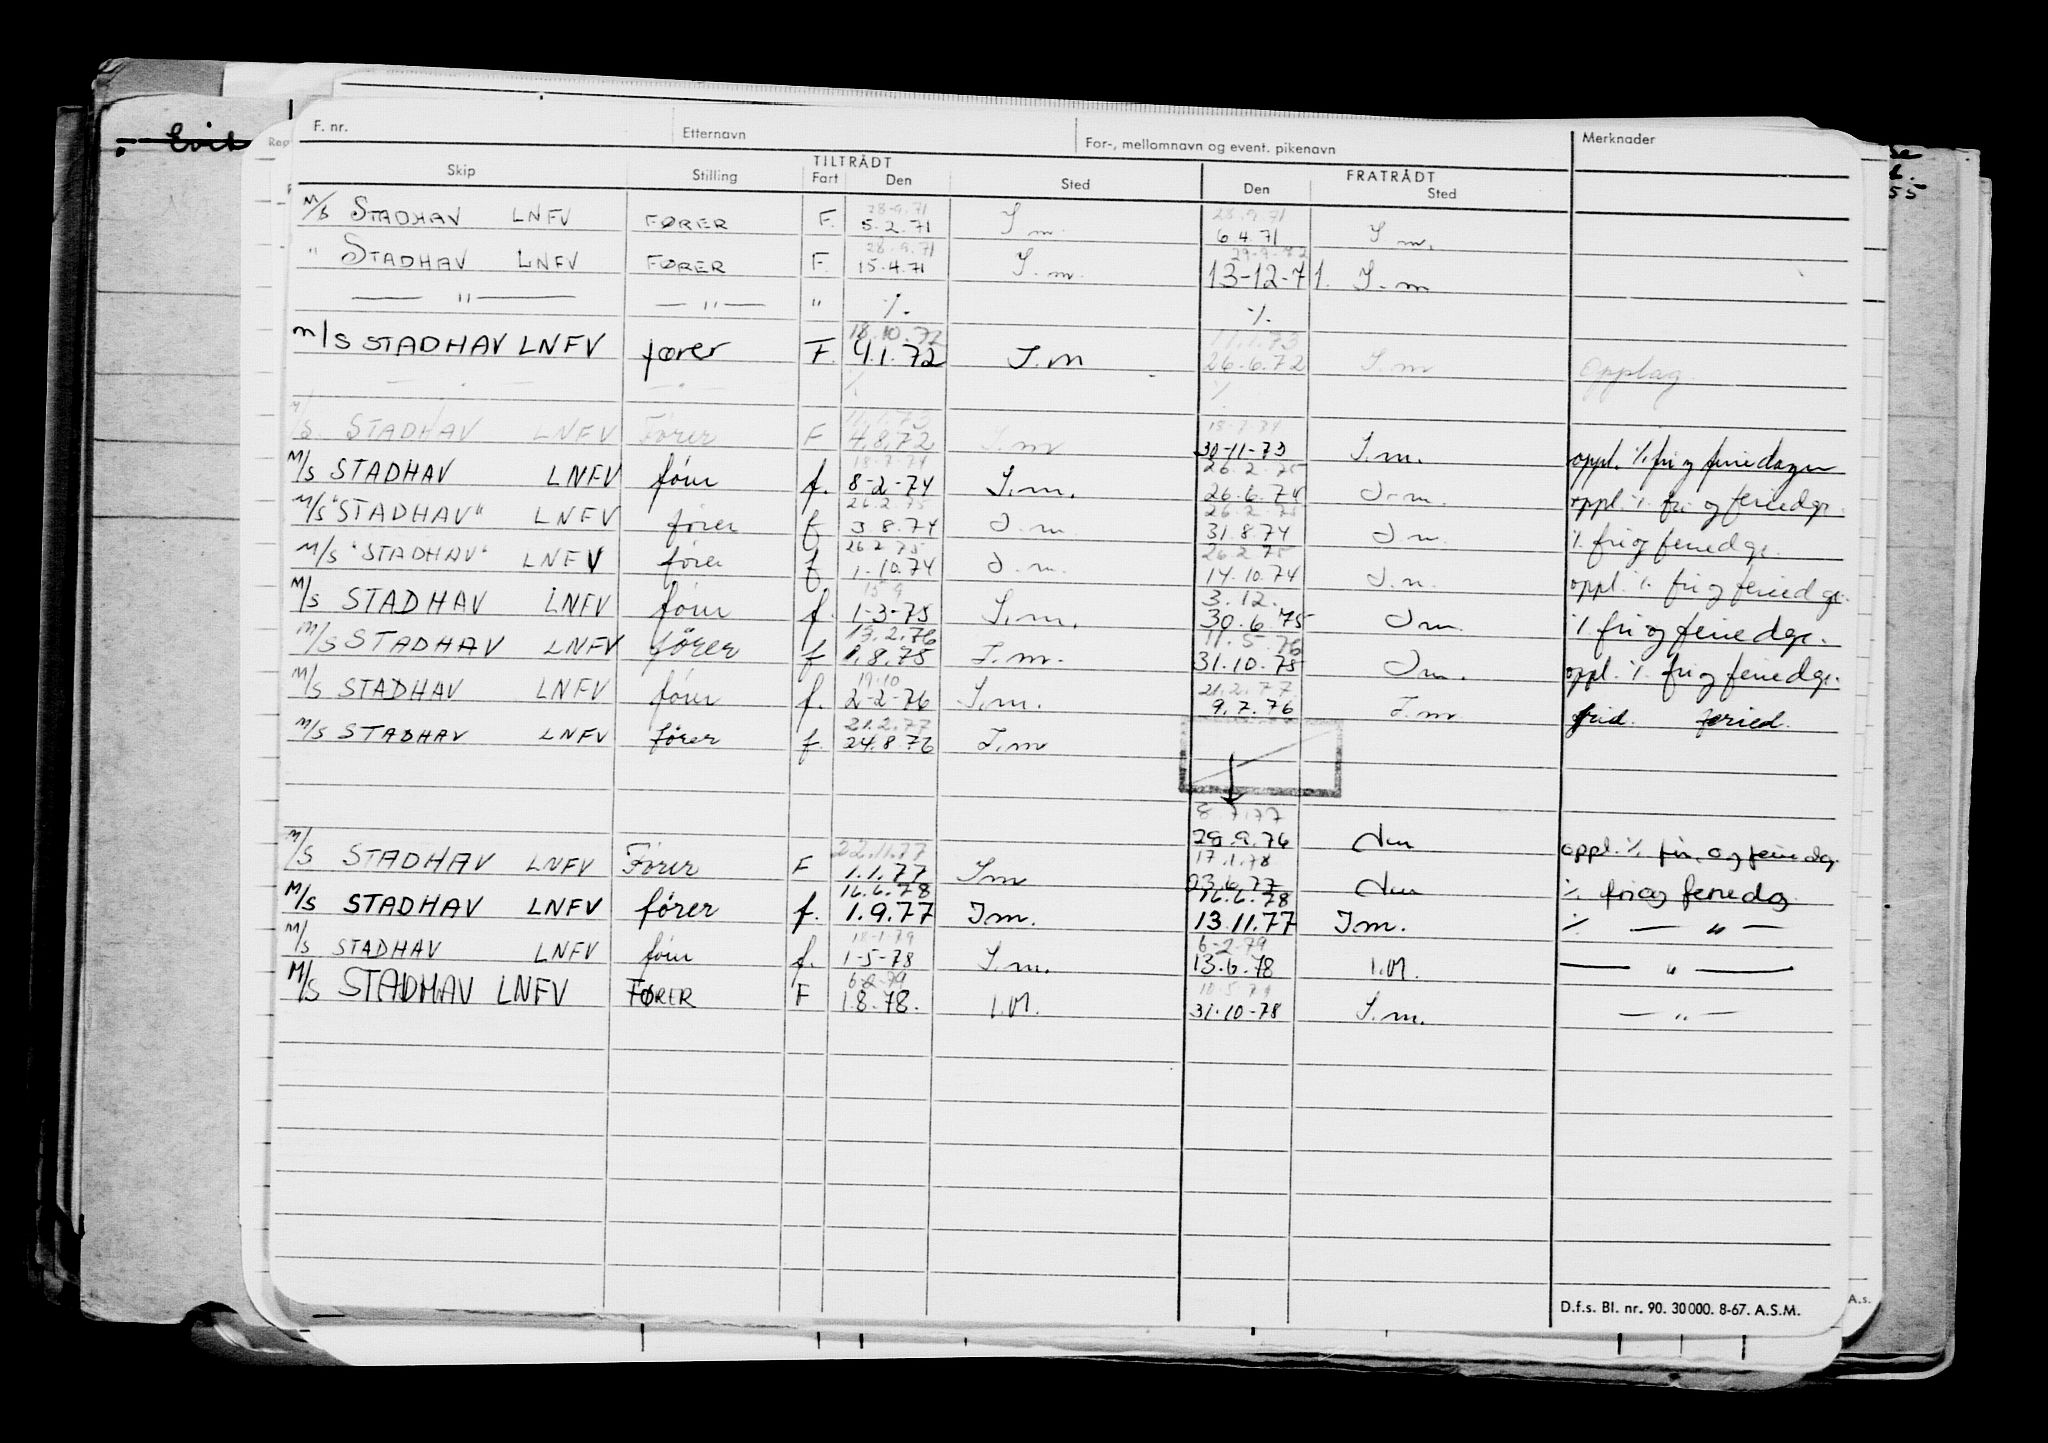 F. nr. Etternavn For-, mellomnavn og event. pikenavn Merknader
TILTRÅDT FRATRÅDT
Skip Stilling Fart Den Sted Den Sted
28-9.71 28.9.71
M/S STADHAV LNFV FØRER F. 5.2.71 I m. 6 4.71 I m.
28.9.71 29-9-72
" STADHAV LNFV FØRER F. 15.4.71 I.m. 13-12-71. I.m
— " — — " — " ⁒ ⁒
18.10.72 11.1.73
M/S STADHAV LNFV fører F. 4.1.72 I.m 26.6.72 I.m Opplag
— " — — " — ⁒ ⁒
11.1.73 18-7-74
M/S STADHAV LNFV Fører F 4.8.72 I.m 30-11-73 I.m. oppl. ⁒ fri og feriedager
18-7-74 26.2.75
M/S STADHAV LNFV fører f. 8-2-74 I.m. 26.6.74 I.m. oppl ⁒ fri og feriedgr.
26.2.75 26.2.75
M/S "STADHAV" LNFV fører f 3.8.74 I.m. 31.8.74 I m. ⁒ fri og feriedgr.
26.2.75 26.2.75
M/S "STADHAV" LNFV fører f 1.10.74 I.m. 14.10.74 I.m. oppl ⁒ fri og feriedgr.
15.9 3.12.
M/S STADHAV LNFV fører f. 1-3-75 I.m. 30.6.75 I m. ⁒ fri og feriedgr.
13.2.76 11.5.76
M/S STADHAV LNFV fører f 1.8.75 I.m. 31.10.75 I m. oppl. ⁒ fri og feriedgr.
19.10 21.2.77
M/S STADHAV LNFV fører f. 2-2-76 I.m. 9.7.76 I.m frid. feried.
21.2.77
M/S STADHAV LNFV fører f. 24.8.76 I.m
8.7.77
28.9.76 Im oppl. ⁒ fri og feriedgr.
22.11.77 17.1.78
M/S STADHAV LNFV Fører F 1.1.77 Im 23.6.77 Im ⁒ fri og feriedg.
16.6.78 16.6.78
M/S STADHAV LNFV fører f. 1.9.77 Im. 13.11.77 Im. ⁒ — " —
18-1-79 6-2.79
M/S STADHAV LNFV fører f. 1-5-78 I.m. 13.6.78 I.M. — " —
6-2-79 10.5.79
M/S STADHAV LNFV FØRER F 1.8.78. I.M. 31.10-78 I.m. — " —
D.f.s. Bl. nr. 90. 30 000. 8-67. A.S.M.